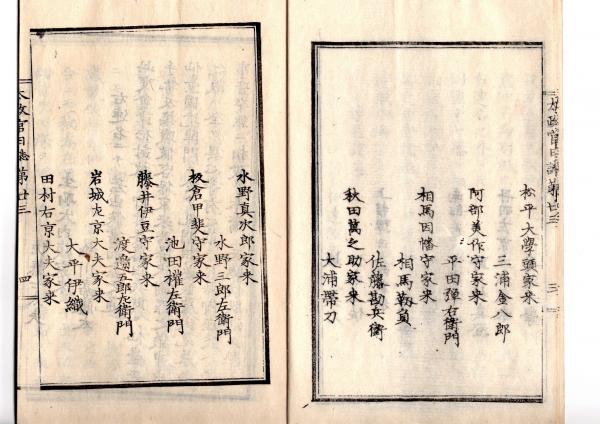 松平大學頭家来
三浦金八郎
阿部美作守家来
平田弾右衛門
相馬因幡守家来
相馬靱負
佐藤勘兵衛
秋田萬之助家来
大浦帶刀
太政官日誌第廿三
三
水野真次郎家来
水野三郎左衛門
板倉甲斐守家来
池田權左衛門
藤井伊豆守家来
渡邉五郎左衛門
岩城左京大夫家来
大平伊織
田村右京大夫家来
太政官日誌第廿三
四